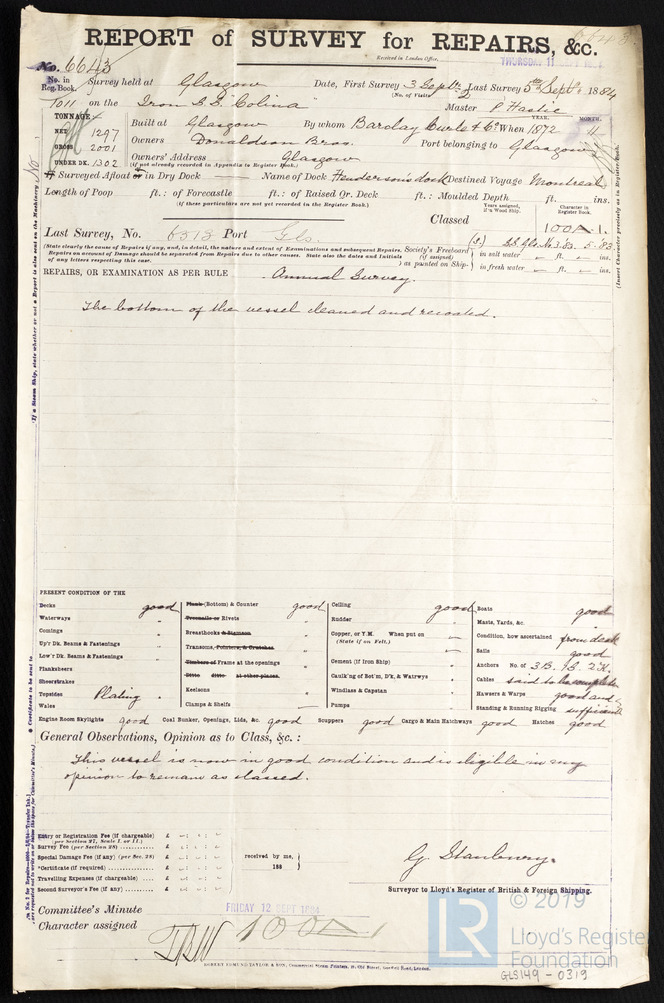 REPORT of SURVEY for REPAIRS, &c.
Received in London Office,
THURSDAY 11 1884
No. 6643
No. in Reg. Book.
Survey held at Glasgow Date, First Survey 3 Septr. Last Survey 5th Septr. 1884
(No. of Visits 2
7011 on the Iron S.S. "Colina" Master P Hastie
TONNAGE
NET 1297
GROSS 2001
UNDER DK. 1302
YEAR. MONTH.
Built at Glasgow By whom Barclay Curle & Co When 1872 11
Owners Donaldson Bros. Port belonging to Glasgow
Owners' Address Glasgow
(if not already recorded in Appendix to Register Book.)
If Surveyed Afloat or in Dry Dock — Name of Dock Henderson's dock Destined Voyage Montreal
Length of Poop ft.: of Forecastle ft.: of Raised Qr. Deck ft.: Moulded Depth ft. ins.
(if these particulars are not yet recorded in the Register Book.)
Years assigned, if in Wood Ship.
Character in Register Book.
Classed 100A.1.
Last Survey, No. 6513 Port Gls.
(State clearly the cause of Repairs if any, and, in detail, the nature and extent of Examinations and subsequent Repairs. Society's Freeboard
Repairs on account of Damage should be separated from Repairs due to other causes. State also the dates and Initials (if assigned) in salt water ft. ins.
of any letters respecting this case. ) as painted on Ship- in fresh water ft. ins.
REPAIRS, OR EXAMINATION AS PER RULE Annual Survey.
The bottom of the vessel cleaned and recoated.
PRESENT CONDITION OF THE
Decks good
Waterways "
Comings "
Up'r Dk. Beams & Fastenings "
Low'r Dk. Beams & Fastenings "
Planksheers
Sheerstrakes
Topsides Plating "
Wales
Plank (Bottom) & Counter good
Treenails or Rivets "
Breasthooks & Sigmann "
Transoms, Pointers, & Crutches "
Timbers of Frame at the openings "
Ditto ditto at other places.
Keelsons "
Clamps & Shelfs
Ceiling good
Rudder "
Copper, or Y.M. When put on —
(State if on Felt.)
Cement (if Iron Ship) "
Caulk'ng of Bot'm, D'k, & Watrwys "
Windlass & Capstan "
Pumps "
Boats good
Masts, Yards, &c. "
Condition, how ascertained from deck
Sails good
Anchors No. of 3 B. 1 S. 2 K.
Cables said to be complete
Hawsers & Warps good and
Standing & Running Rigging sufficient
Engine Room Skylights good Coal Bunker, Openings, Lids, &c. good Scuppers good Cargo & Main Hatchways good Hatches good
General Observations, Opinion as to Class, &c.:
This vessel is now in good condition and is eligible in my
opinion to remain as classed.
Entry or Registration Fee (if chargeable) £
(per Section 27, Scale I. or II.)
Survey Fee (per Section 28) £
Special Damage Fee (if any) (per Sec. 28) £
*Certificate (if required) £
Travelling Expenses (if chargeable) £
Second Surveyor's Fee (if any) £
received by me,
188
G. Stanbury.
Surveyor to Lloyd's Register of British & Foreign Shipping.
Committee's Minute FRIDAY 12 SEPT 1884
Character assigned 100A1
© 2019
LR
Lloyd's Register
Foundation
GLS149-0319